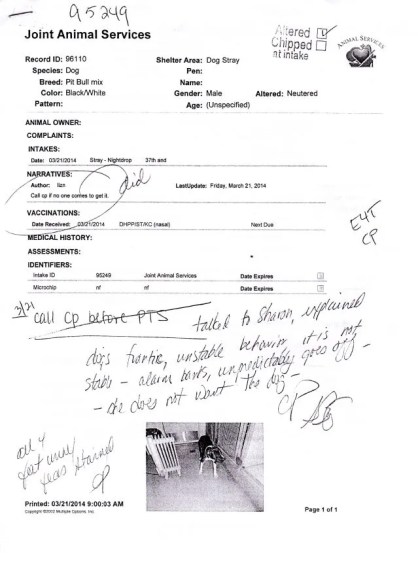 95249
Joint Animal Services
Altered ☑
Chipped ☐
at intake
ANIMAL SERVICES
Record ID: 96110 Shelter Area: Dog Stray
Species: Dog Pen:
Breed: Pit Bull mix Name:
Color: Black/White Gender: Male Altered: Neutered
Pattern: Age: (Unspecified)
ANIMAL OWNER:
COMPLAINTS:
INTAKES:
Date: 03/21/2014 Stray - Nightdrop 37th and
NARRATIVES:
Author: lizn LastUpdate: Friday, March 21, 2014
Call cp if no one comes to get it.
did
VACCINATIONS:
Date Received: 03/21/2014 DHPP/ST/KC (nasal) Next Due
CP
MEDICAL HISTORY:
ASSESSMENTS:
IDENTIFIERS:
Intake ID 95249 Joint Animal Services Date Expires
Microchip nf nf Date Expires
3/21 call cp before PTS talked to Sharon, explained
dogs frantic, unstable behavior it is not
stable - alarm barks, unpredictably goes off -
- she does not want the dog -
CP
all 4
feet
stained
CP
Printed: 03/21/2014 9:00:03 AM
Page 1 of 1
Copyright ©2002 Multiple Options, Inc.